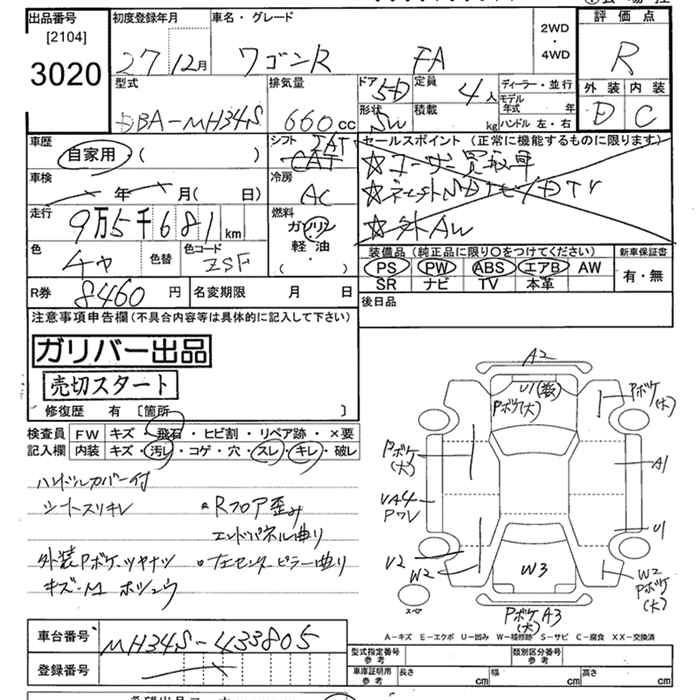 出品番号
[2104]
3020
初度登録年月
27 12月
車名・グレード
ワゴンR FA
2WD
・
4WD
評価点
R
外装 内装
D C
型式
DBA-MH34S
排気量
660cc
ドア
5D
定員
4人
形状
SW
積載
kg
ディーラー・並行
モデル年式 年
ハンドル 左・右
車歴
自家用・( )
シフト
IAT
CAT
セールスポイント (正常に機能するものに限ります)
☆ユーザー買取車
☆外AW
車検
年 月( 日)
冷房
AC
走行
9万5千681km
燃料
ガソリン
軽・油
( )
色
チャ
色替
色コード
ZSF
装備品 (純正品に限り○をつけてください)
PS PW ABS エアB AW
SR ナビ TV 本革
新車保証書
有・無
R券 8460円
名変期限 月 日
後日品
注意事項申告欄(不具合内容等は具体的に記入して下さい)
ガリバー出品
売切スタート
修復歴 有 [箇所 ]
検査員記入欄
FW キズ・飛石・ヒビ割・リペア跡・×要
内装 キズ・汚レ・コゲ・穴・スレ・キレ・破レ
ハンドルカバー付
シートスリキレ
•Rフロア歪み
エンドパネル曲り
外装Pボケツヤナシ
•左センターピラー曲り
キズ・M ホシュウ
A2
U1
Pボケ(大)
Pボケ(大)
Pボケ(大)
A1
VA4
Pワレ
U1
V2
W2
W3
W2
Pボケ(大)
スペア
PボケA3
(大)
A-キズ E-エクボ U-凹み W-補修跡 S-サビ C-腐食 XX-交換済
車台番号 MH34S-433805
登録番号
型式指定番号
参考
類別区分番号
参考
車庫証明用
参考
長さ cm
幅 cm
高さ cm